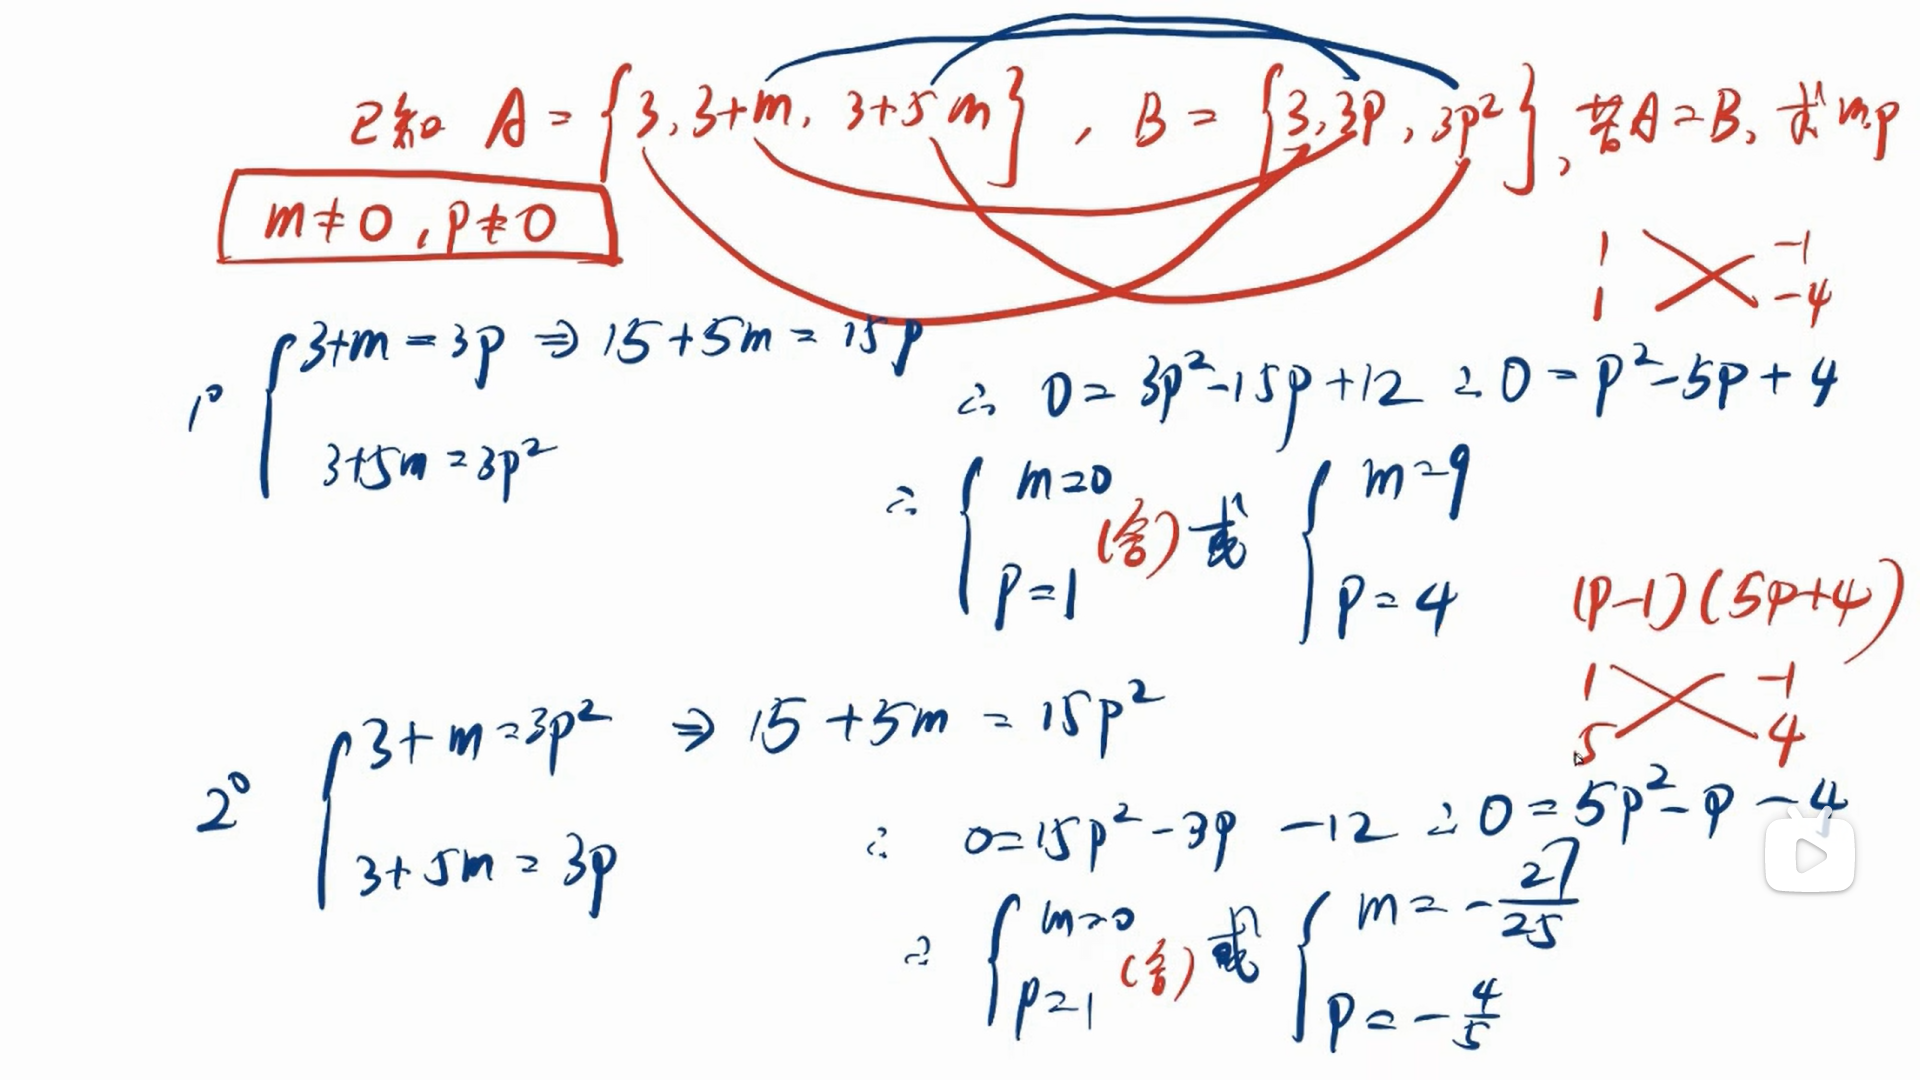 已知 A = {3, 3+m, 3+5m}, B = {3, 3p, 3p²}, 若A=B, 求m,p
m≠0, p≠0
1 -1
1 -4
1° { 3+m = 3p ⇒ 15+5m = 15p
3+5m = 3p²
∴ 0 = 3p²-15p+12 ∴ 0 = p²-5p+4
∴ { m=0 p=1 (舍) 或 { m=9 p=4
(p-1)(5p+4)
1 -1
5 4
2° { 3+m = 3p² ⇒ 15+5m = 15p²
3+5m = 3p
∴ 0=15p²-3p-12 ∴ 0=5p²-p-4
∴ { m=0 p=1 (舍) 或 { m=-27/25 p=-4/5